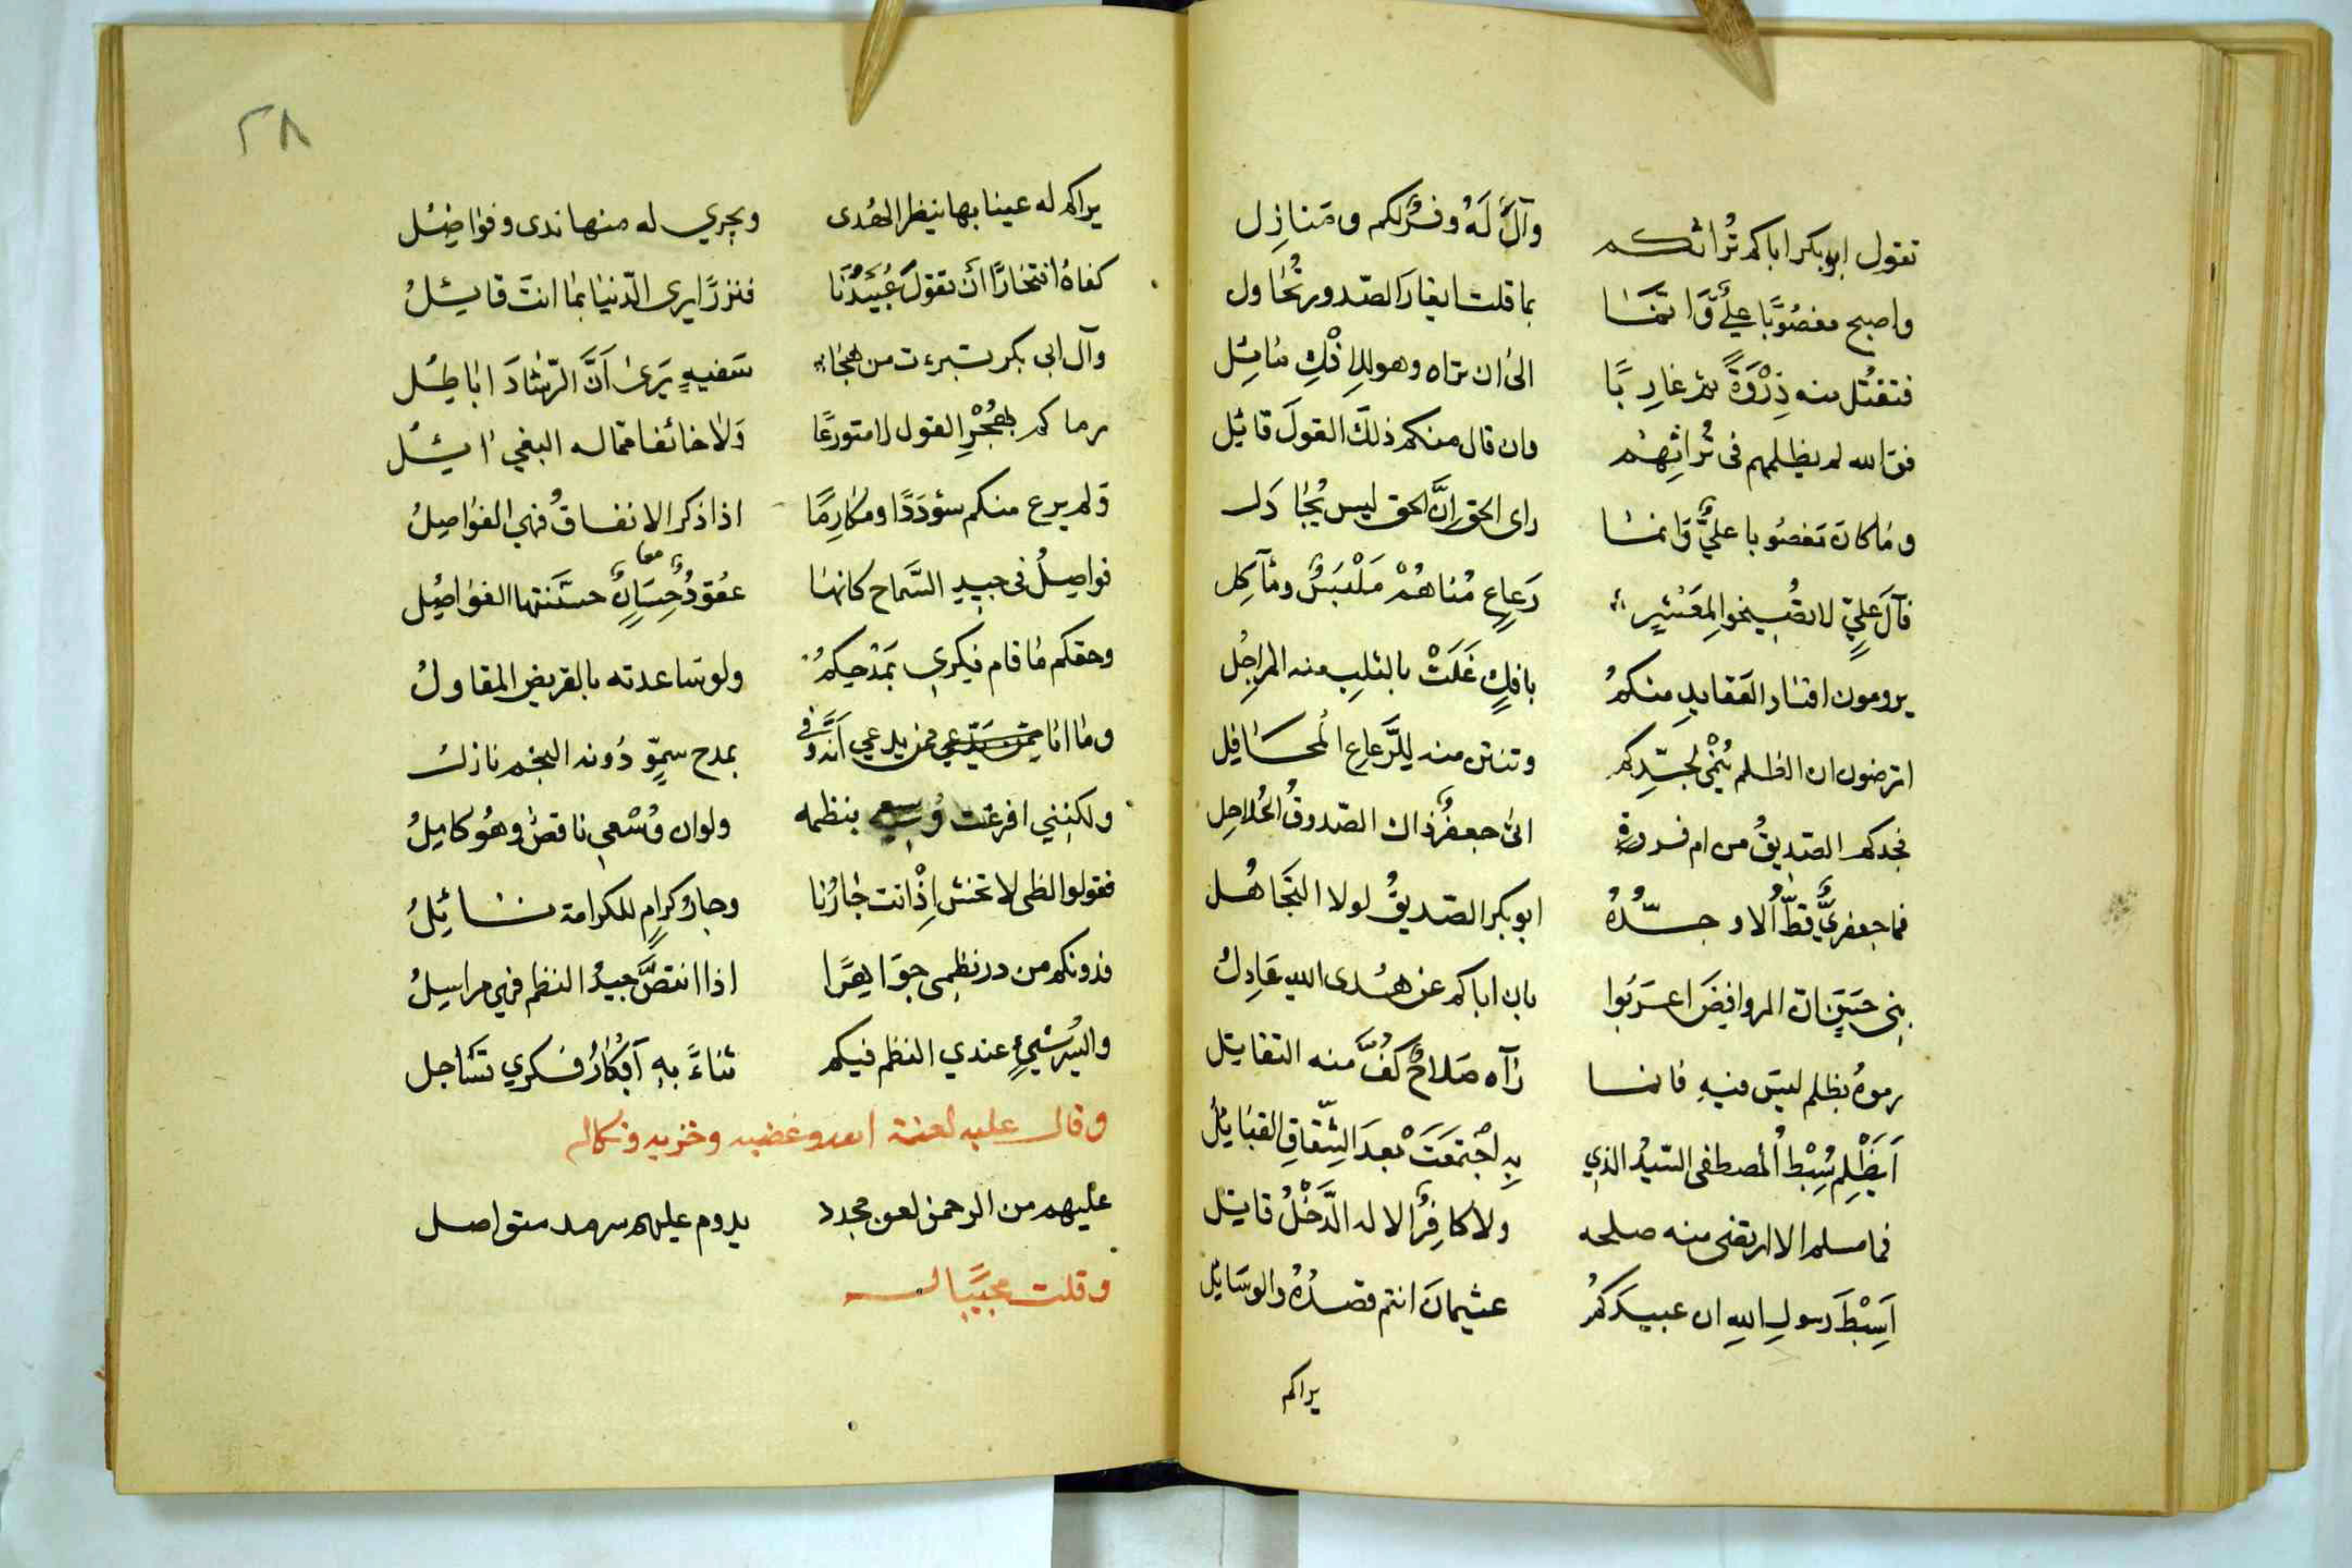 تقول ابوبكر اباكم تُراثكم وآلٌ لَهُ وفرٌ لكم ومَنازِل
واصبح مغصُوبًا عليٌّ وَانَّمَا بما قلت ايغار الصّدور تُحَاول
فتفتُل منه ذِرْوَةً ثم غارِبًا الى ان تراه وهو للإفْكِ مائِل
فوالله لم يظلمهم فى تُراثِهمْ وان قال منكم ذلك القولَ قائِل
وما كان مَغصُوبا عليٌّ وَانما راى الحق إنَّ الحق ليس يُجَادَل
فآلَ عليٍّ لا تصُيخوا لِمَعْشرٍ رَعاعٍ مُناهُمْ مَلْبَسٌ ومآكِل
يرومون افساد العَقايدِ منكمُ بافكٍ غَلَتْ بالثلبِ منه المراجِل
اترضون ان الظلم يُنْمى لجدِّكم وتنتن منه للرَّعاع المحَافِل
فجدكم الصّديقُ من ام فروة اتى جعفرٌ ذاك الصّدوقُ الحُلاحِل
فما جعفريٌّ قطّ ألا وجدُّهُ ابوبكر الصّديقُ لولا التجَاهُل
بنى حسَنٍ ان الروافِضَ اعرَبُوا بان اباكم عن هُدى الله عَادِلُ
رموهُ بظلم ليسَ فيهِ فانما رآه صَلاحٌ كَفَّ منه التقايل
أيَظْلِم سِبْطُ المصطفى السّيدُ الذي بِهِ اجْتمَعَتْ بعدَ الشِّقاقِ القبَايِلُ
فما مسلم الا ارتضى منه صلحه ولا كافِرٌ الا له الدَّخْلُ قايل
أَسِبْطَ رسولِ اللهِ ان عبيدكمُ عثيمانَ انتم قصدُهُ والوسَايلُ
يراكم
٢٨
يراكم له عينا بها ينظر الهُدى ويجري له منها ندى وفواضِلُ
كفاهُ افتخارًا أن تقول عُبَيدُنَا فنزرًا يرى الدّنيا بما انتَ قايلُ
وآل ابى بكر تبرءت من هجاء سَفيهٍ يَرى أنَّ الرّشادَ اباطِلُ
رماكم بهُجْرِ القول لا متورعًا وَلا خائفا مما له البغي آيلُ
ولم يرع منكم سؤدَدًا ومكارِمًا اذا ذكر الانفاقُ فهي الفواصِلُ
فواصِلُ فى جيدِ السَّماح كانها عقودُ حِسَانٍ معا حسَّنتها الفواصِلُ
وحقكم ما قام فكري بمَدْحيكمُ ولو سَاعدته بالقريض المقاولُ
وما انا ممن يدّعي فمن يدعي أنه وفى بمدح سمِوّ دُونه النجم نازلُ
ولكنني افرغت وُسعي بنظمه ولو ان وُسْعي ناقصٌ وهُو كامِلُ
فقولوا لظى لا تخش إذْ انت جارُنا وجارُ كرامٍ للكرامة نائِلُ
فدونكم من در نظمي جوَاهرًا اذا انتصَّ جيدُ النظم فهي مراسِلُ
وايسُر شيءٍ عندي النظم فيكم ثناءً بهِ أبكارُ فكري تسَاجل
وقال عليه لعنة الله وغضبه وخزيه ونكاله
عليهم من الرحمن لعن مجدد يدوم عليهم سرمد متواصل
وقلت مجيبًا له